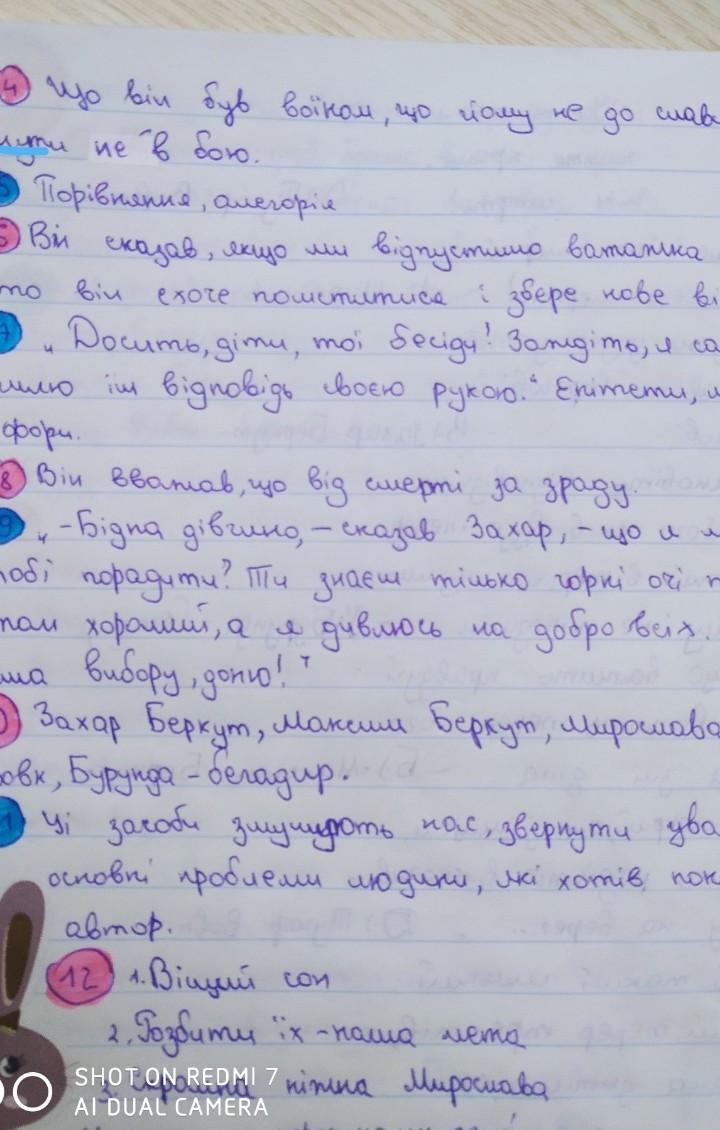 4 Що він був воїном, що йому не до слав
нути не в бою.
5 Порівняння, алегорія
6 Він сказав, якщо ми відпустимо ватажка
то він схоче помститися і збере нове ві
7 „Досить, діти, тої бесіди! Заждіть, я са
шлю їм відповідь своєю рукою." Епітети, м
фори.
8 Він вважав, що від смерті за зраду.
9 „-Бідна дівчино, - сказав Захар, що я м
тобі порадити? Ти знаєш тілько горкі очі т
там хороший, а я дивлюсь на добро всіх.
ма вибору, доню!"
Захар Беркут, Максим Беркут, Мирослава
Вовк, Бурунда - бегадир.
1 Ці засоби змушують нас, звернути ува
основні проблеми людини, які хотів пок
автор.
12 1. Віщий сон
2. Розбити їх - наша мета
3. ніжна Мирослава
SHOT ON REDMI 7
AI DUAL CAMERA